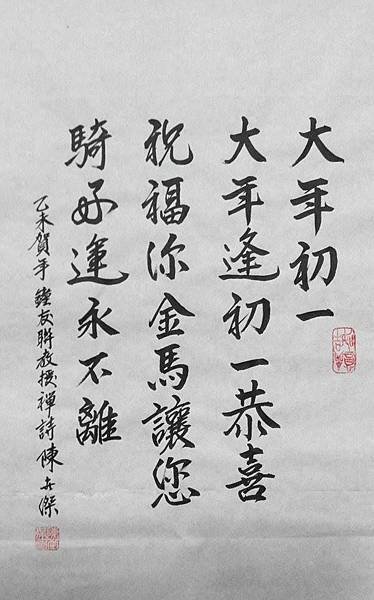 大年初一
大年逢初一恭喜
祝福你金馬讓您
騎好運永不離
乙未賀年 鍾友聯教授禪詩 陳世傑